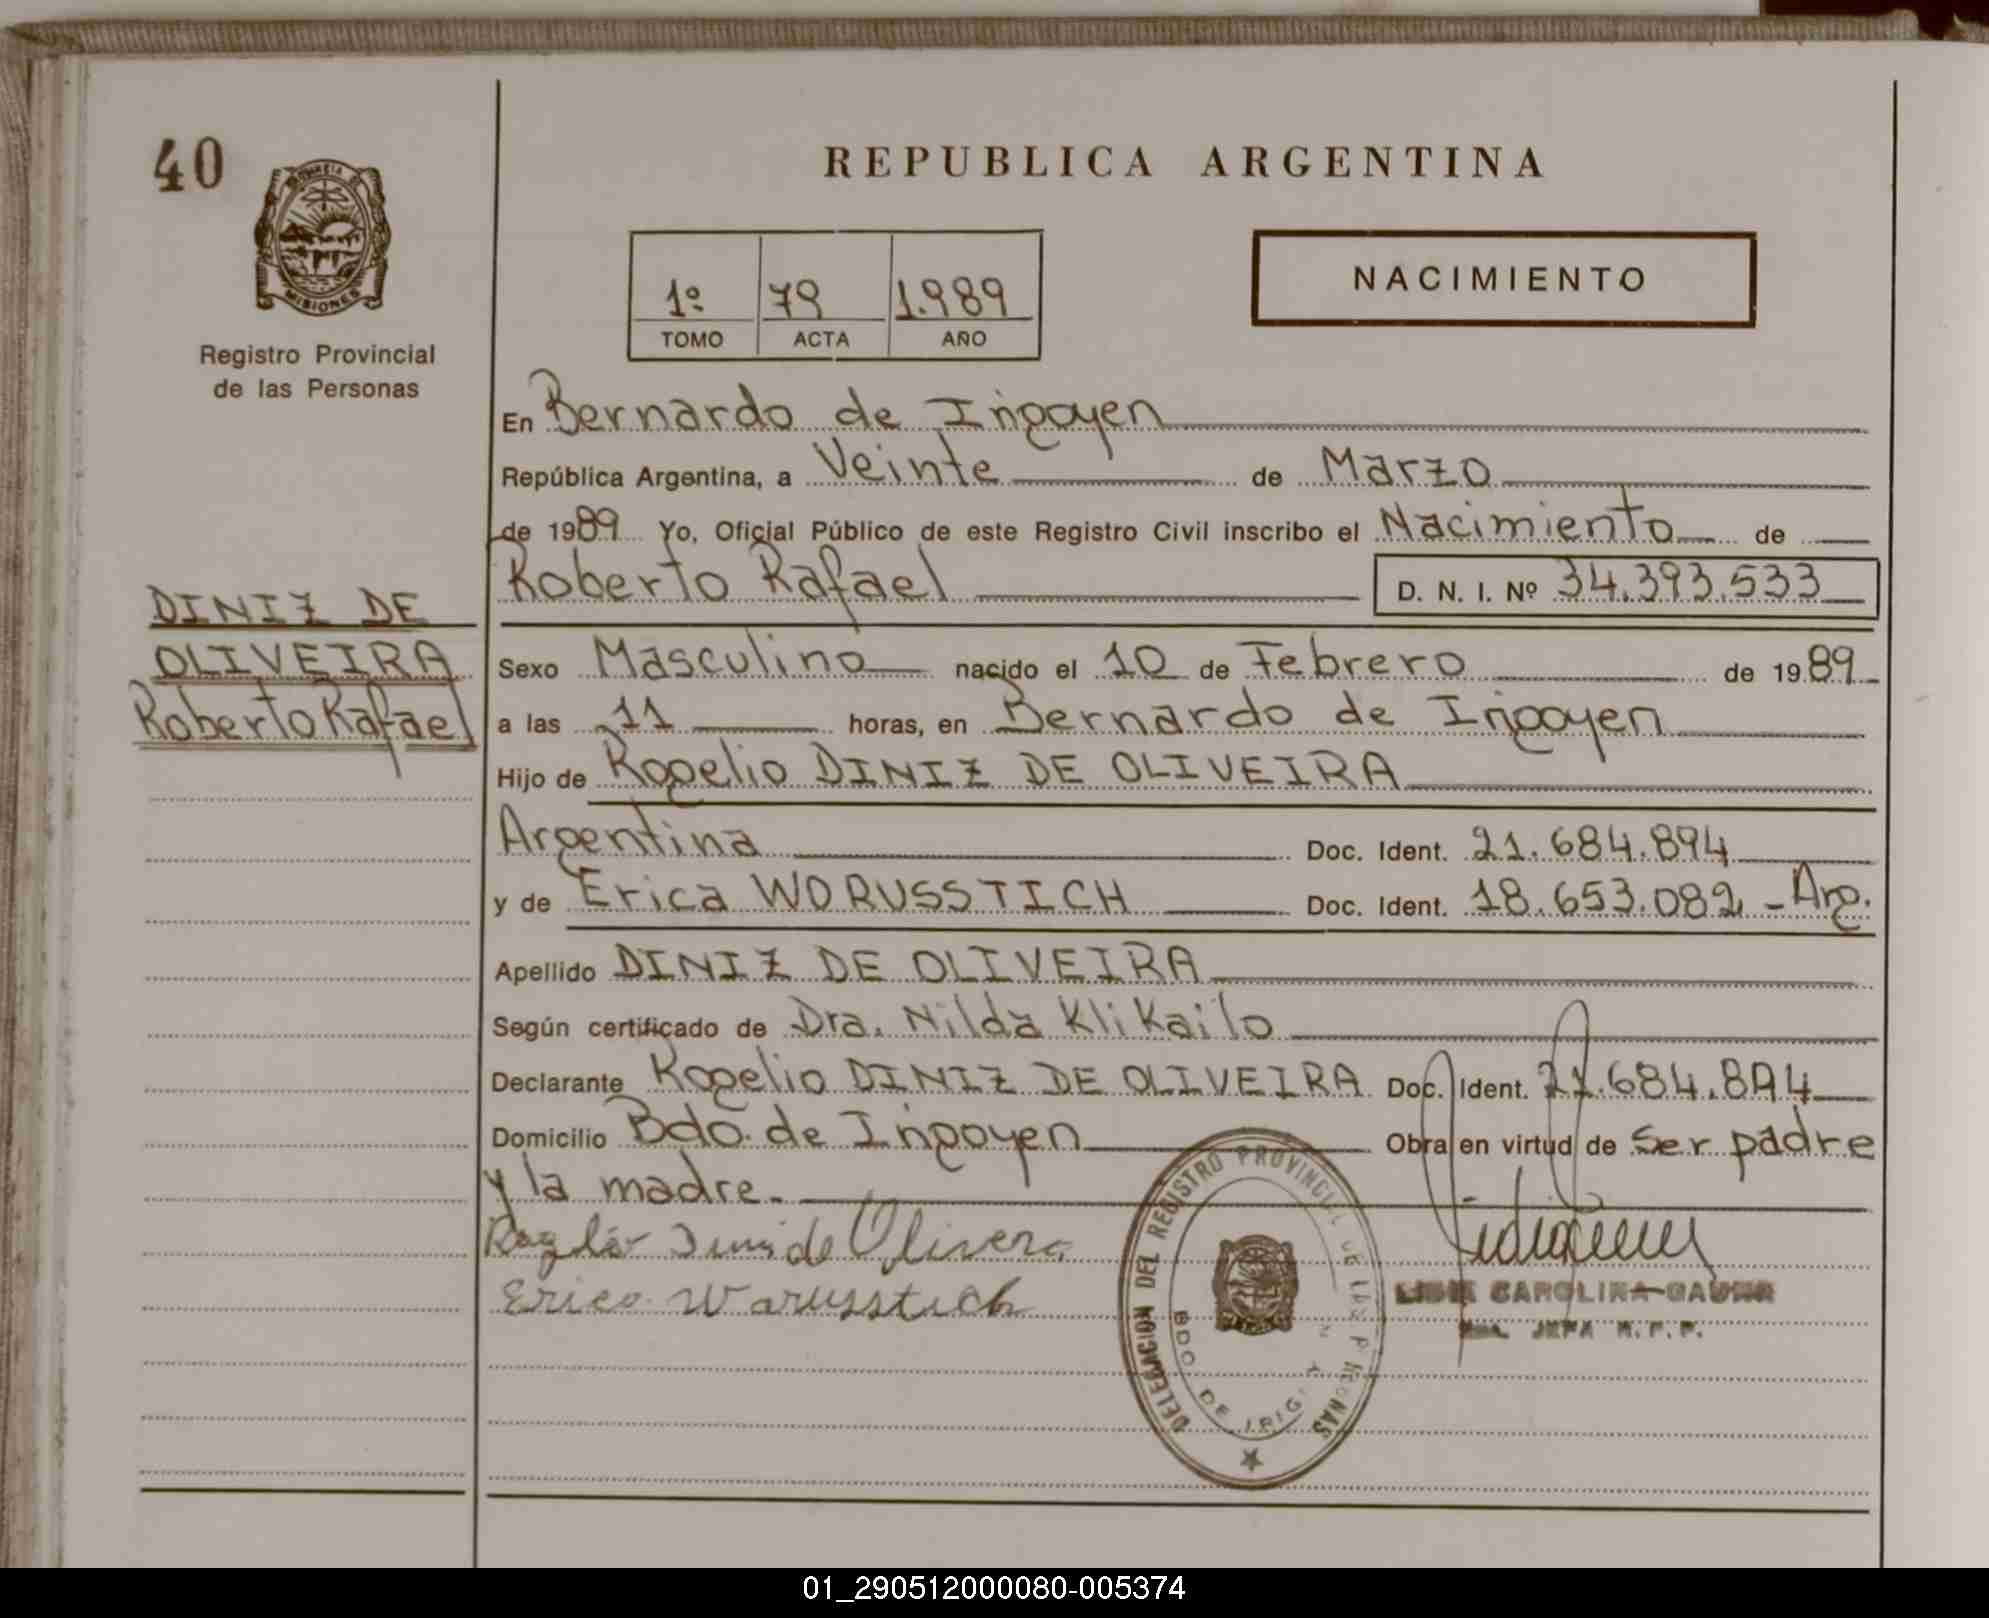 40
MISIONES
Registro Provincial
de las Personas
REPUBLICA ARGENTINA
1º 79 1.989
TOMO ACTA AÑO
NACIMIENTO
En Bernardo de Irigoyen
República Argentina, a Veinte de Marzo
de 1989 Yo, Oficial Público de este Registro Civil inscribo el Nacimiento de
Roberto Rafael D. N. I. Nº 34.393.533
DINIZ DE
OLIVEIRA
Roberto Rafael
Sexo Masculino nacido el 10 de Febrero de 1989
a las 11 horas, en Bernardo de Irigoyen
Hijo de Rogelio DINIZ DE OLIVEIRA
Argentina Doc. Ident. 21.684.894
y de Erica WORUSSTICH Doc. Ident. 18.653.082 - Arg.
Apellido DINIZ DE OLIVEIRA
Según certificado de Dra. Nilda Klikailo
Declarante Rogelio DINIZ DE OLIVEIRA Doc. Ident. 21.684.894
Domicilio Bdo. de Irigoyen Obra en virtud de Ser padre
y la madre.
de Olivera
Warusstich
DELEGACION DEL REGISTRO PROVINCIAL DE LAS PERSONAS
BDO DE IRIGOYEN
CAROLINA
JEFA R.P.P.
01_290512000080-005374